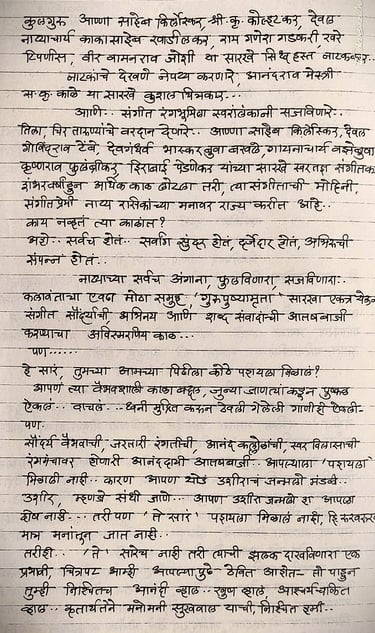 कुलगुरू आण्णा साहेब किर्लोस्कर, श्री. कृ. कोल्हटकर, देवल
नाट्याचार्य काकासाहेब खाडीलकर, राम गणेश गडकरी, खरे
टिपणीस, वीर वामनराव जोशी या सारखे सिद्ध हस्त नाटककार..
नाटकांचे देखणे नेपथ्य करणारे, आनंदराव मेस्त्री
स. कृ. काळे या सारखे कुशल चित्रकार...
आणि.. संगीत रंगभूमीला स्वरालंकांनी सजविणारे..
तिला चिर तारुण्याचे वरदान देणारे.. आण्णा साहेब किर्लोस्कर, देवल
गोविंदराव टेंबे, देवगंधर्व भास्करबुवा बखले, गायनाचार्य वझेबुवा
कृष्णराव फुलंब्रीकर, हिराबाई पेडणेकर यांच्या सारखे स्वरतज्ञ संगीतकार
शंभर वर्षाहून अधिक काळ लोटला तरी, त्या संगीताची मोहिनी,
संगीत प्रेमी नाट्य रसिकांच्या मनावर राज्य करीत आहे..
काय नव्हतं त्या काळात?
अहो.. सर्वच होतं.. सर्वांग सुंदर होतं, दर्जेदार होतं, अभिरुची
संपन्न होतं..
नाट्याच्या सर्वच अंगाना, फुलविणारा, सजविणारा..
कलावंताचा एवढा मोठा समूह, 'गुरुपुष्यामृता' सारखा एकत्र येऊन
संगीत सौंदर्याची अभिनय आणि शब्द संवादांची आतषबाजी
करण्याचा अविस्मरणिय काळ...
पण......
हे सारं, तुमच्या आमच्या पिढीला कोठे पहायला मिळालं?
आपण त्या वैभवशाली काळा बद्दल, जुन्या जाणत्यां कडून पुष्कळ
ऐकलं.. वाचलं.. ध्वनी मुद्रित करून ठेवली गेलेली गाणीही ऐकली-
पण.
सौंदर्य वैभवाची, जरतारी रंगतीची, आनंद कल्लोळांची, स्वर विलासाची
रंगमंचावर होणारी आनंददायी आतषबाजी.. आपल्याला 'पहायला'
मिळाली नाही.. कारण आपण थोडं उशीरांच जन्मलो मंडळी..
उशीर, म्हणजे संधी जाणे... आपण उशीरा जन्मलो हा आपला
दोष नाही... तरी पण 'ते सारं' पहायला मिळालं नाही, हि रुखरुख
मात्र मनांतून जात नाही..
तरीही.. 'ते' सारेच नाही तरी त्याची झलक दाखविणारा एक
प्रभावी, चित्रपट आम्ही आपल्यापुढे ठेवित आहोत- तो पाहून
तुम्ही निश्चितच आनंदी व्हाल.. खूष व्हाल, आश्चर्यचकित
व्हाल.. कृतार्थतेने मनोमनी सुखवाल याची, निश्चित हमी..